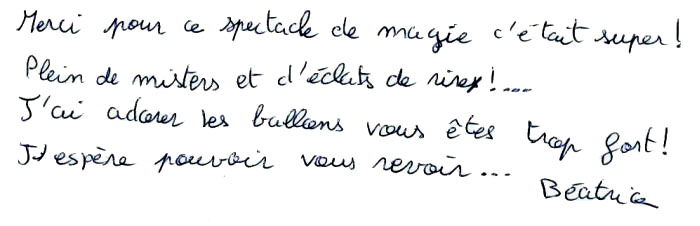 Merci pour ce spectacle de magie c'était super!
Plein de misters et d'éclats de rires!....
J'ai adorer les ballons vous êtes trop fort!
J'espère pouvoir vous revoir...
Béatrice